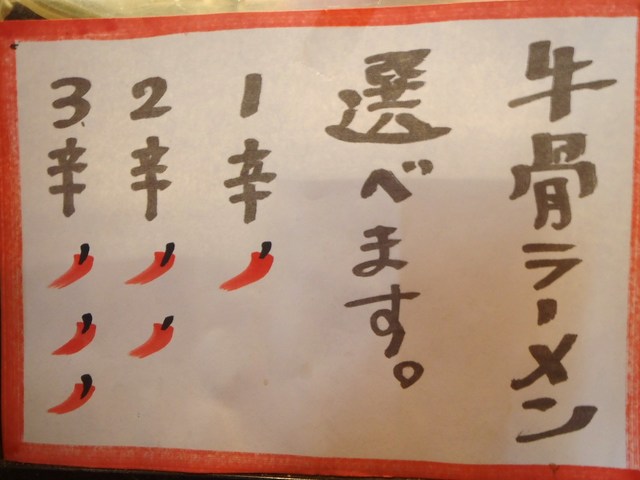 牛骨ラーメン
選べます。
1辛
2辛
3辛